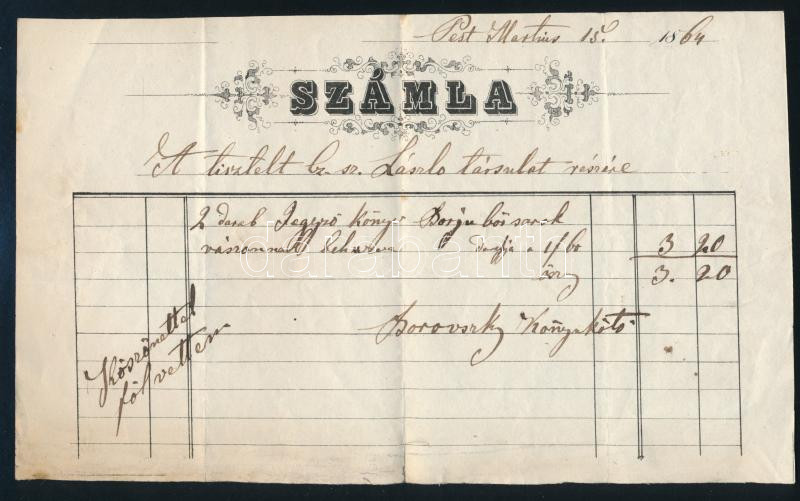 Pest Martius 15. 1864
SZÁMLA
A tisztelt Sz. László társulat részére
2 darab Jegyző könyv Borju bőr sarok
vászonnal darabja a 1/60 3 20
3. 20
Borovszky Könyvkötő
Köszönettel
fölvettem
darabanth